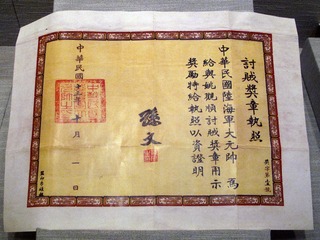 討賊獎章執照
中華民國陸海軍大元帥 爲
給與姚觀順討賊獎章用示
獎勵特給執照以資證明
孫文
中華民國十二年十月一日